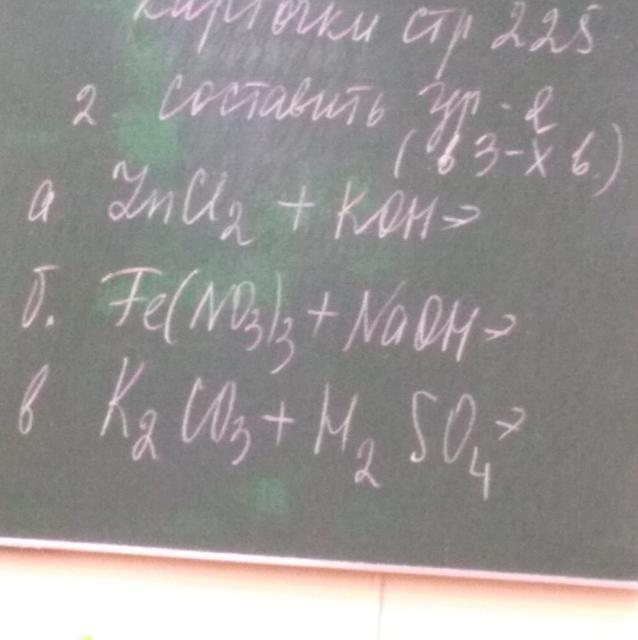 карточки стр 225
2. составить ур-е
(в 3-х в.)
а ZnCl₂ + KOH →
б. Fe(NO₃)₃ + NaOH →
в K₂CO₃ + H₂SO₄ →